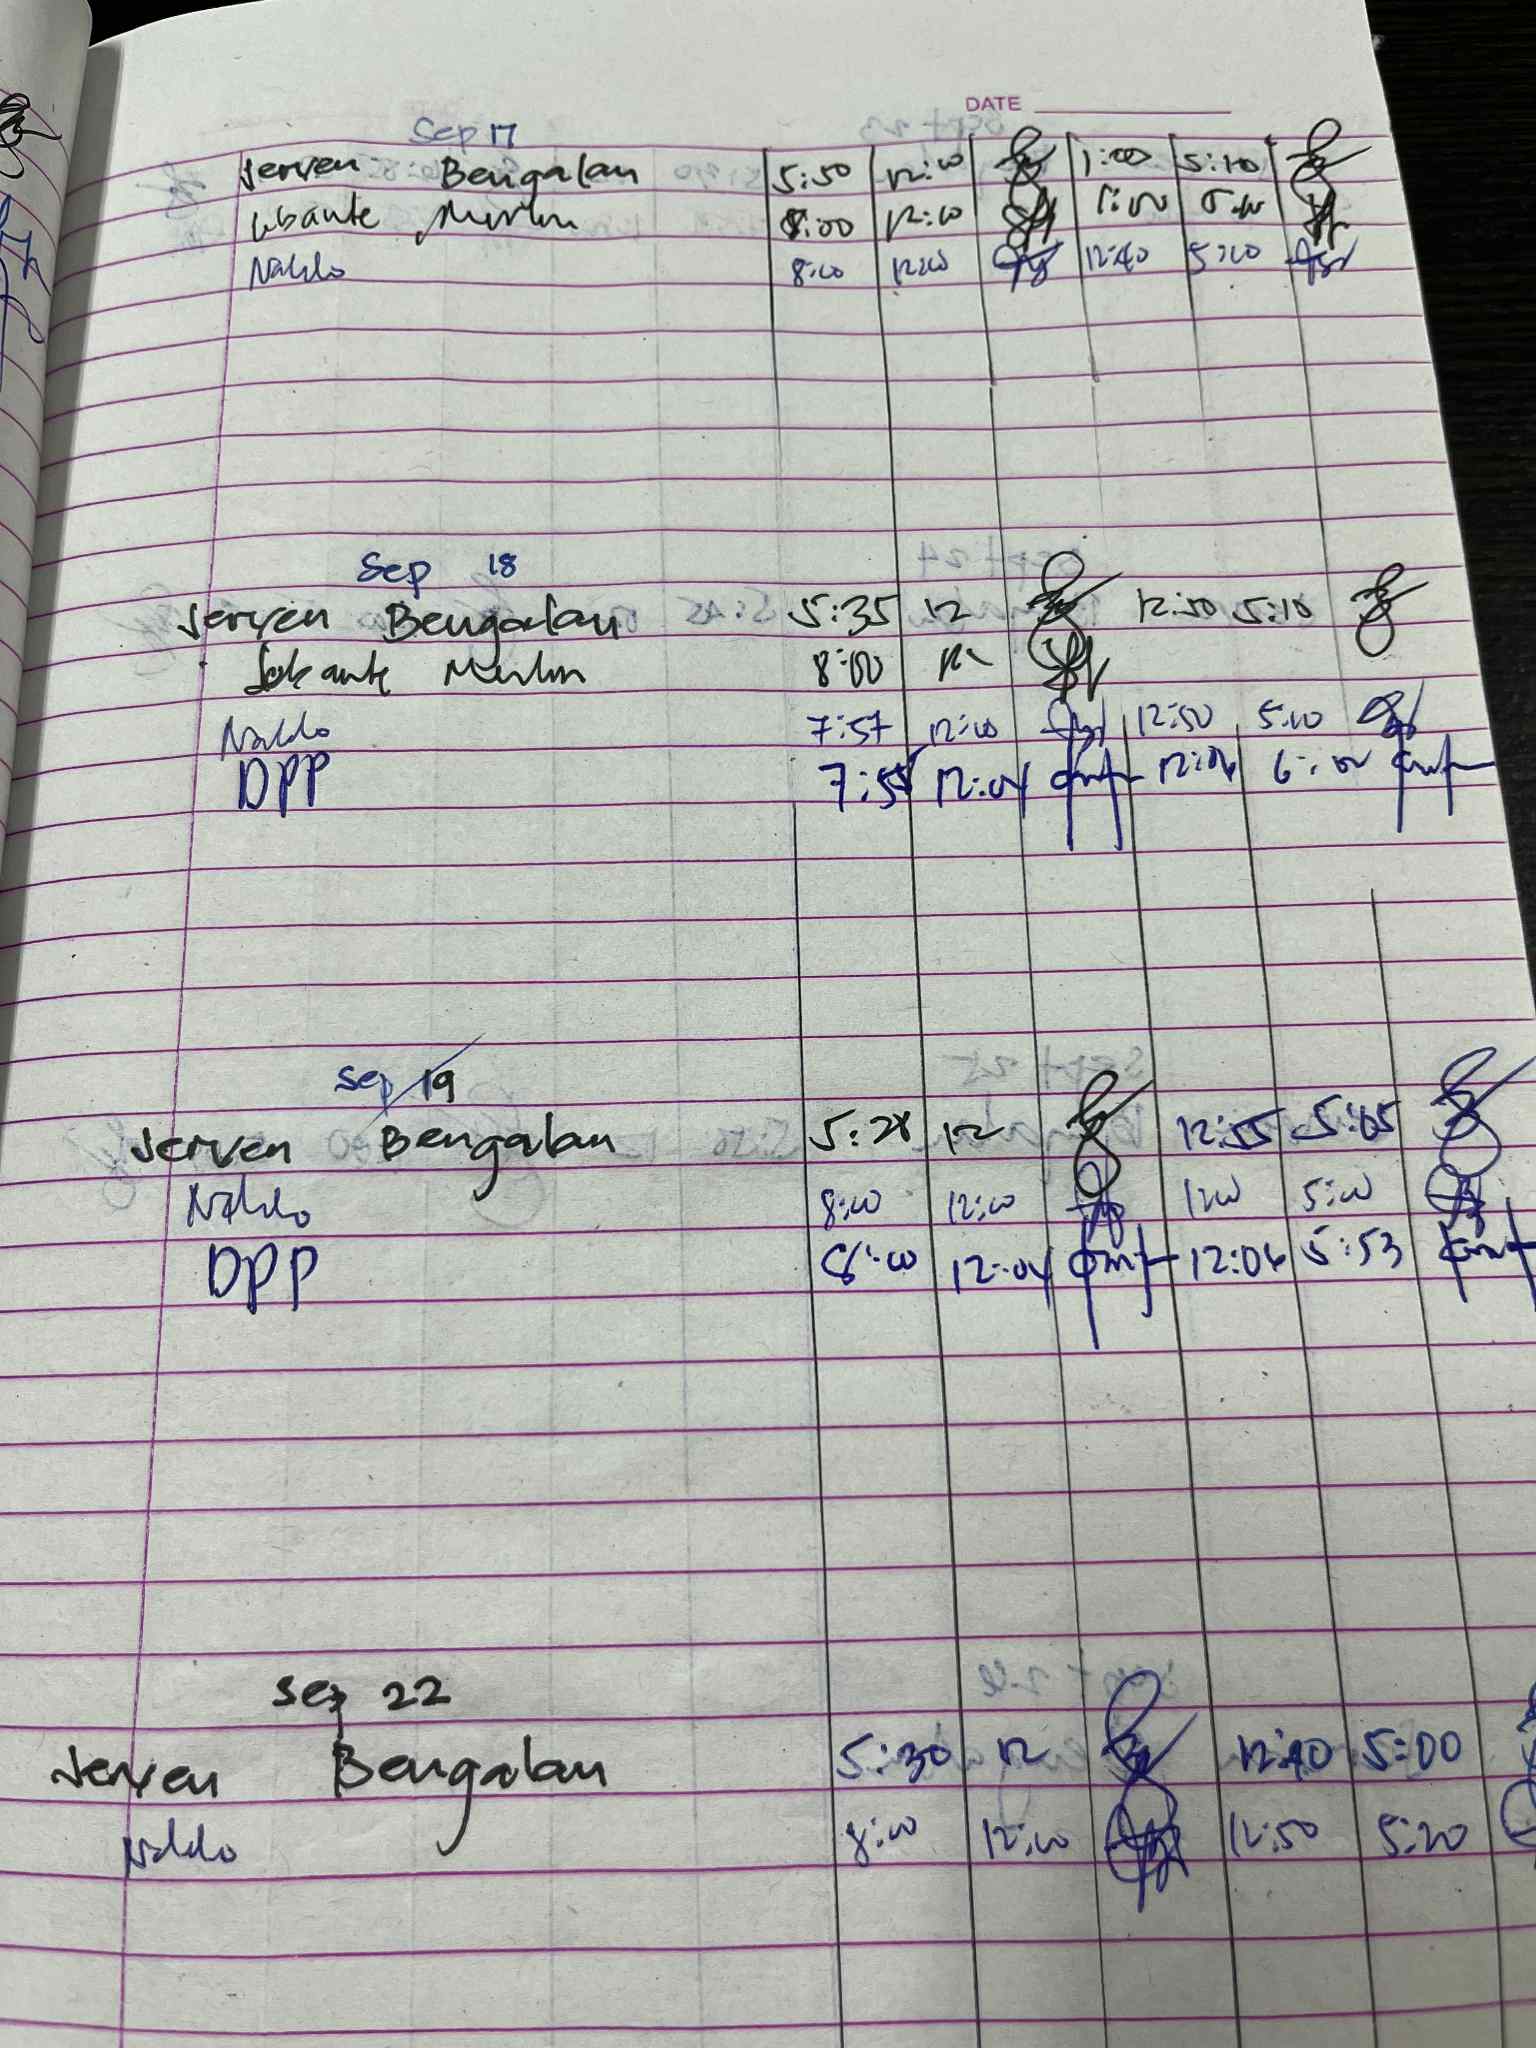 DATE
Sep 17
Jerven Bengalan 5:50 12:00 1:00 5:10
Merlin 8:00 12:00 1:00 5:00
Naldo 8:00 12:00 12:40 5:00
Sep 18
Jerven Bengalan 5:35 12 12:50 5:10
Merlin 8:00 12
Naldo 7:57 12:00 12:50 5:00
DPP 7:55 12:04 12:06 6:00
Sep 19
Jerven Bengalan 5:28 12 12:55 5:05
Naldo 8:00 12:00 1:00 5:00
DPP 8:00 12:04 12:06 5:53
Sep 22
Jerven Bengalan 5:30 12 12:40 5:00
Naldo 8:00 12:00 12:50 5:20